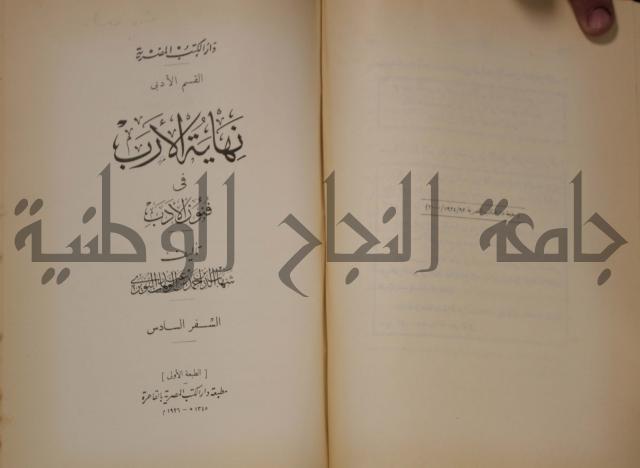 دار الكتب المصرية
القسم الأدبى
نهاية الأرب
فى
فنون الأدب
تأليف
شهاب الدين أحمد بن عبد الوهاب النويرى
السفر السادس
[ الطبعة الأولى ]
مطبعة دار الكتب المصرية بالقاهرة
١٣٤٥ ه - ١٩٢٦ م
جامعة النجاح الوطنية